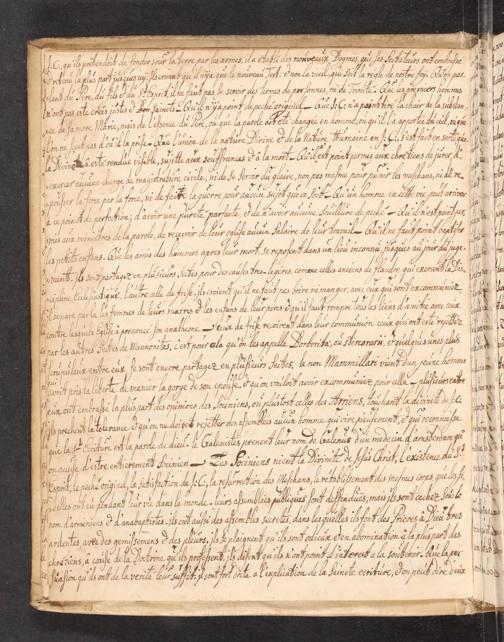 J.C. qu'ils pretendoit de fonder sur la terre par les armes, il a etabli des nouveaux Dogmes, que ses Sectateurs ont embrassé
et retenu la plus part jusques icy. Ils croient qu'il n'y a que le nouveau Test. & non la vieil, qui soit la regle de nostre foy. Qu'en par-
lant du Pere, du fils et du St Esprit, il ne faut pas se servir des termes de personnes, ni de Trinité. Que les premiers hommes
n'ont pas esté créés justes & Saincts. Qu'il n'y a point de peché originel. Que J.C. n'a point tiré la chair de la substan-
ce de sa mere Marie, mais de l'essence du Pere, ou que la parole a esté changée en homme, ou qu'il l'a apportée du ciel,
l'on ne sçait pas d'ou il l'a prise. Que l'union de la nature Divine et de la Nature humaine en J.C. s'est faite en sorte que
la Divine a esté rendue visable, sujette aux souffrances et à la mort. Qu'il n'est point permis aux chrestiens de jurer, d'
exercer aucune charge de magistrature civile, ni de se servir du glaive, non pas mesme pour punir les meschans, ni de re-
pousser la force par la force, ni de faire la guerre pour aucun sujet que ce soit. Qu'un homme en cette vie peut arriver
à ce point de perfection, d'avoir une pureté parfaite, et de n'avoir aucune souillure de peché. Qu'il n'est point per-
mis aux ministres de la parole, de recevoir de leur eglise aucun salaire de leur travail. Qu'il ne faut point baptiser
les petits enfans. Que les ames des hommes apres leur mort, se reposent dans un lieu inconnu jusques au jour du juge-
ment. Ils sont partagez en plusieurs sectes pour des causes tres-legeres, comme celles anciens de flandre qui exercent la Dis-
cipline Ecclesiastique, l'autre celle de frise, ils croient qu'il ne faut pas boire ni manger, avec eux qui sont excommuniez
il separe par la les femmes de leurs marys & les enfans de leur peres & qu'il faut rompre tous les liens d'amitié avec eux
contre lesquels l'Eglise a prononcé son anatheme. Ceux de frise recoivent dans leur communion ceux qui ont esté rejettéz
par les autres Sectes de Mennonites, c'est pour cela qu'on les appelle Borborites, ou stercorarii, et quelques uns plus
serieux entre eux se sont encore partagez en plusieurs Sectes, le nom Mammillari vient d'un jeune homme
qui avoit pris la liberté de manier la gorge de son epouse, & qu'on vouloit avoir excommunié pour cela. Plusieurs entre
eux ont embrassé la plus part des opinions des Sociniens, ou plustost celles des Arriens, touchant la divinité de J.C.
ils preschent la tolerance, & qu'on ne doit rejetter des assemblées aucun homme qui vive pieusement, & qui reconnoisse
que la Ste Ecriture est la parole de dieu. Les Galenistes prenent leur nom de Galenus d'un medecin d'amsterdam qu'
on accuse d'estre entierement Socinien. Les Sociniens nient la Divinité de Jesus Christ, l'existence du St
Esprit, le peché originel, la satisfaction de J.C., la resurrection des Meschans, le retablissement des mesmes corps que les fi-
delles ont eu pendant leur vie dans le monde. leurs assemblées publiques sont deffendues, mais ils sont cachez sous le
nom d'armeniens & d'anabaptistes. ils ont aussi des assemblées secretes, dans lesquelles ils font des Prieres à Dieu tres
ardentes, avec des gemissemens & des pleurs, ils se plaignent qu'ils sont odieux & en abomination à la plus part des
chrestiens, à cause de la Doctrine qu'ils professent, ils disent qu'ils n'ont point d'interest a la soutenir que la per-
suasion qu'ils ont de la verité leur suffit, ils sont fort a l'explication de la saincte ecriture, & on peut dire d'eux